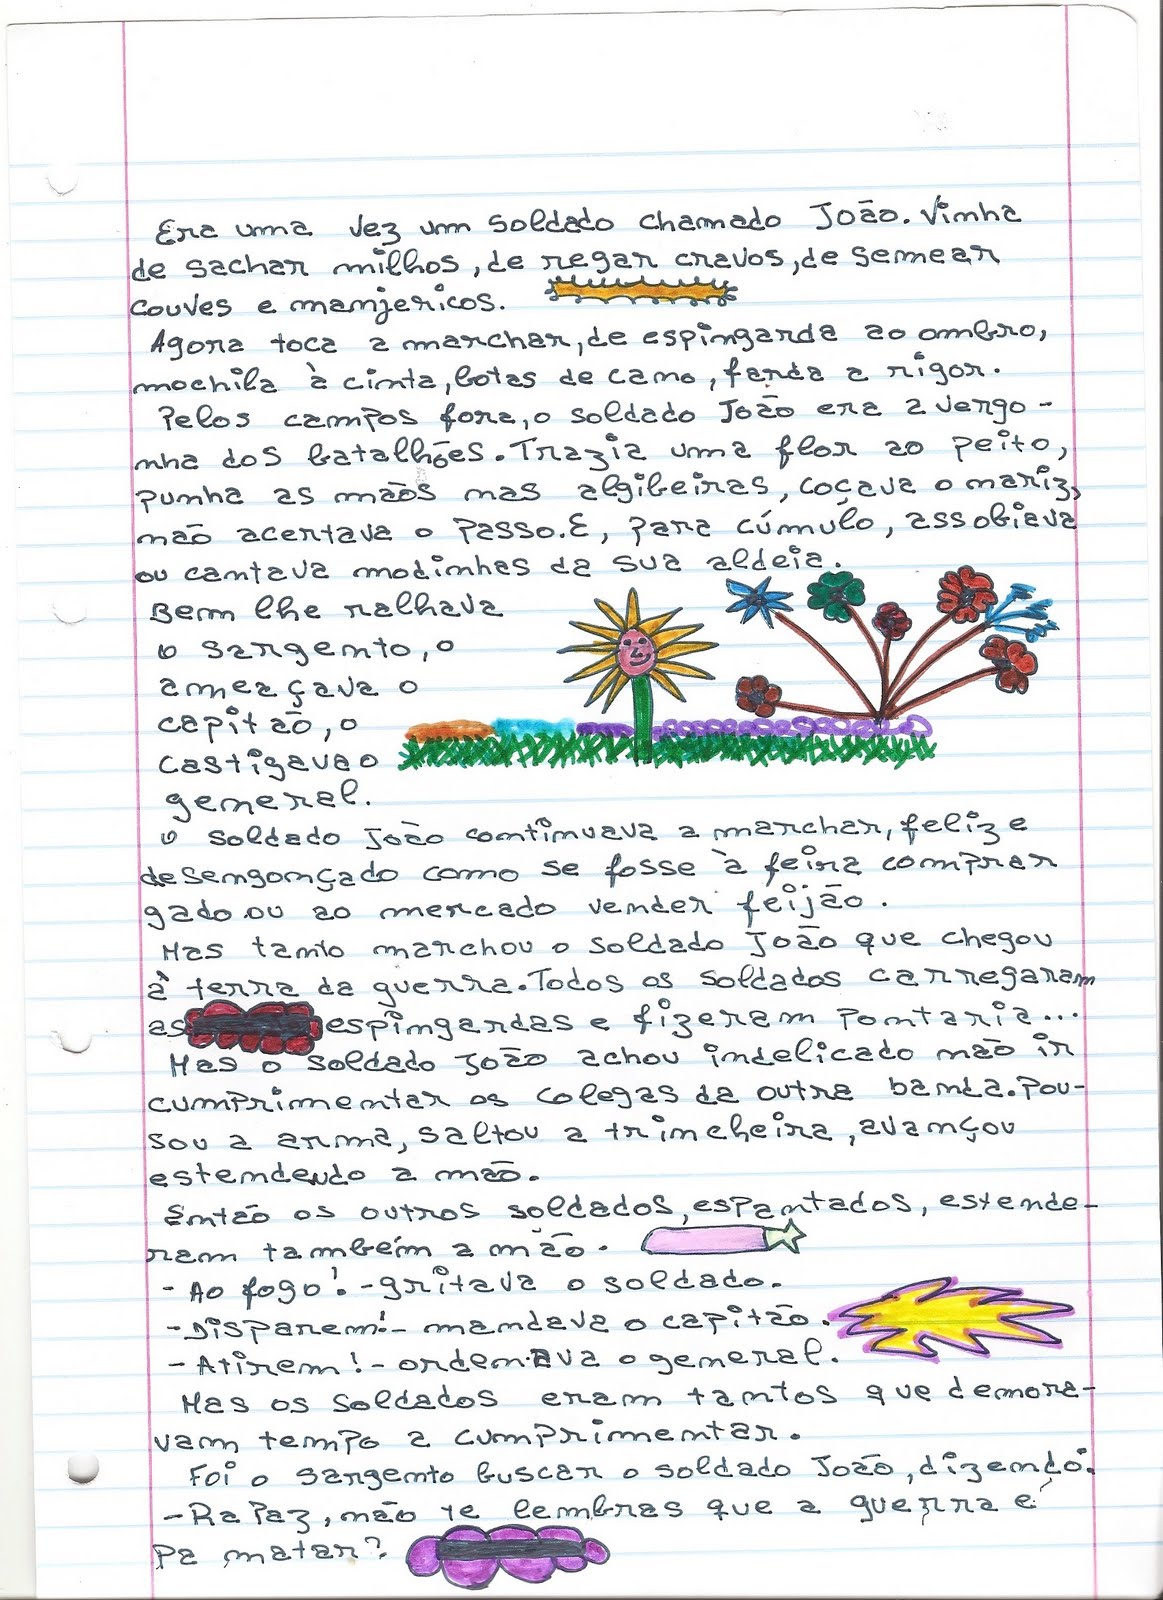 Era uma vez um soldado chamado João. Vinha
de sachar milhos, de regar cravos, de semear
couves e manjericos.
Agora toca a marchar, de espingarda ao ombro,
mochila à cinta, botas de cano, farda a rigor.
Pelos campos fora, o soldado João era a vergo-
nha dos batalhões. Trazia uma flor ao peito,
punha as mãos nas algibeiras, coçava o nariz,
não acertava o passo. E, para cúmulo, assobiava
ou cantava modinhas da sua aldeia.
Bem lhe ralhava
o sargento, o
ameaçava o
capitão, o
castigava o
general.
O soldado João continuava a marchar, feliz e
desengonçado como se fosse à feira comprar
gado ou ao mercado vender feijão.
Mas tanto marchou o soldado João que chegou
à terra da guerra. Todos os soldados carregaram
as espingardas e fizeram pontaria...
Mas o soldado João achou indelicado não ir
cumprimentar os colegas da outra banda. Pou-
sou a arma, saltou a trincheira, avançou
estendendo a mão.
Então os outros soldados, espantados, estende-
ram também a mão.
- Ao fogo! - gritava o soldado.
- Disparem! - mandava o capitão.
- Atirem! - ordenava o general.
Mas os soldados eram tantos que demora-
vam tempo a cumprimentar.
Foi o sargento buscar o soldado João, dizendo:
- Rapaz, não te lembras que a guerra é
pa matar?